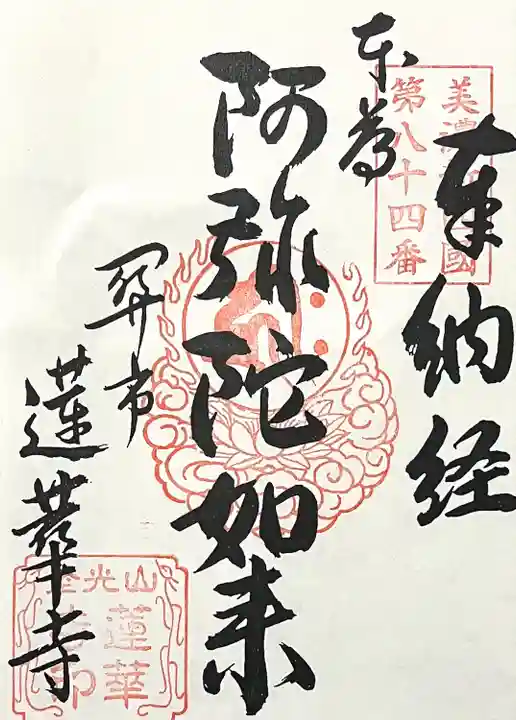 奉納経
美濃新四國
第八十四番
本尊
阿弥陀如来
関市
蓮華寺
蓮華